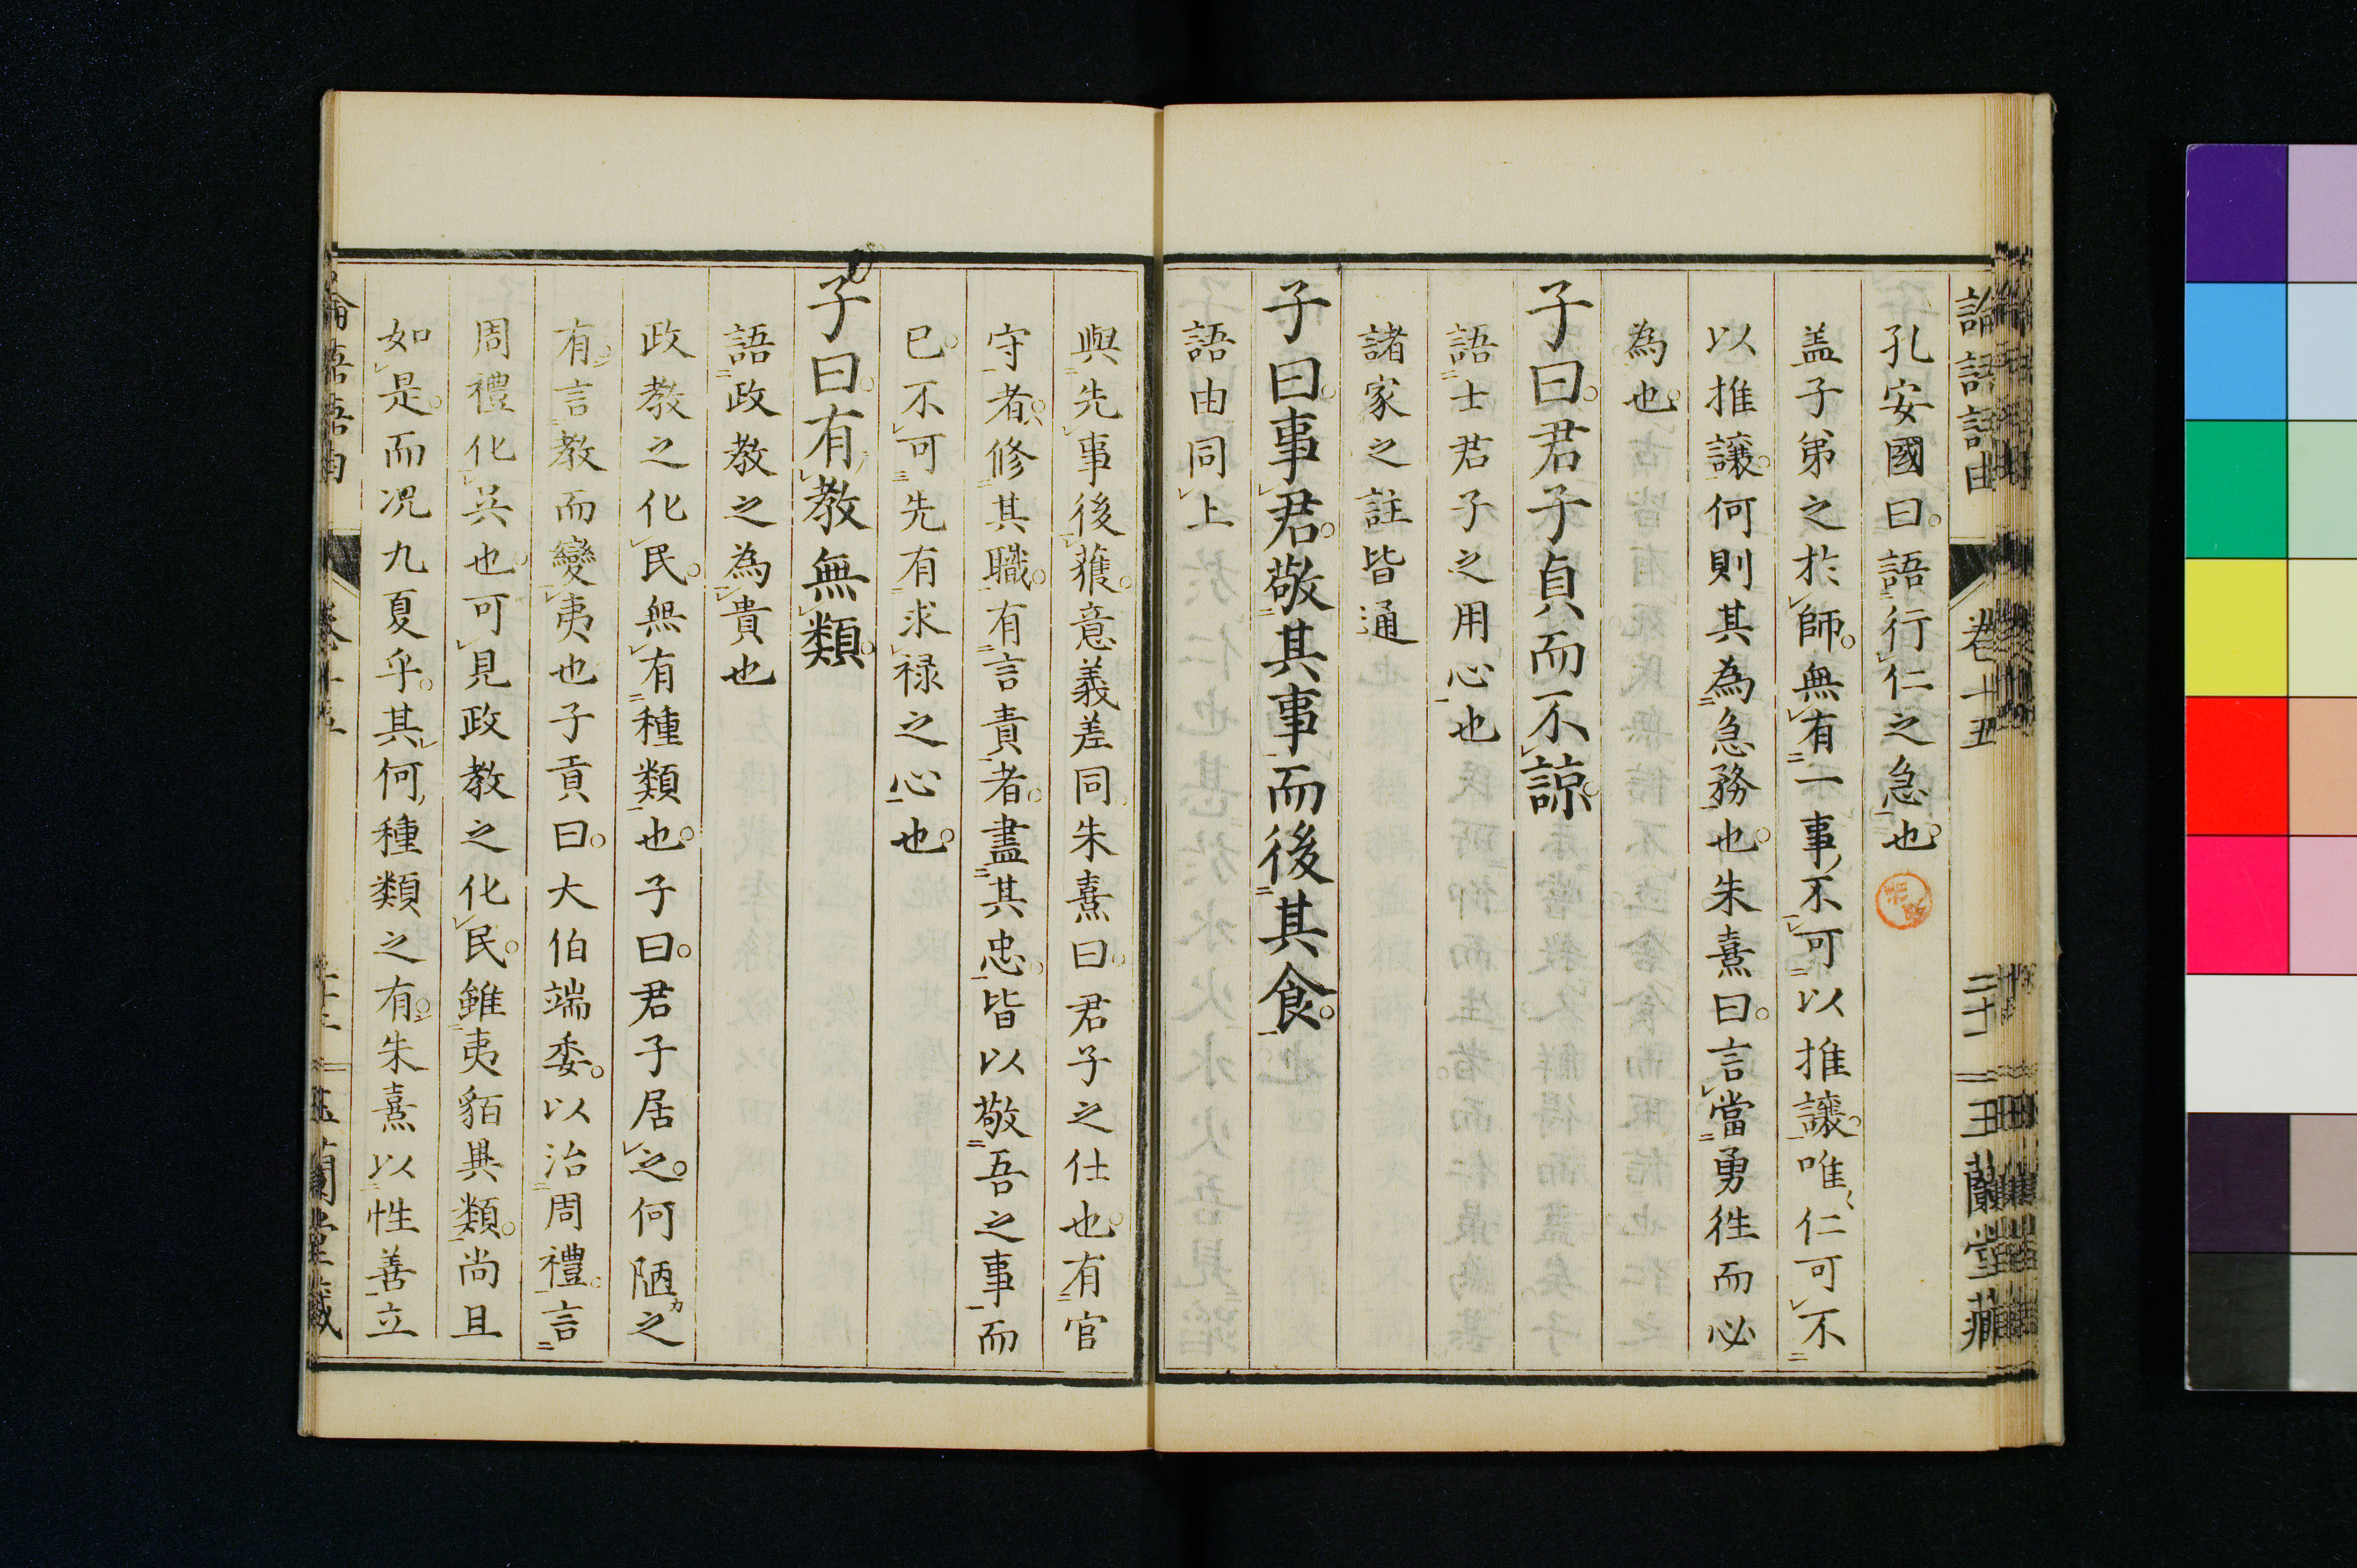 論語語由 卷十五 二十一 玉蘭堂藏
孔安國曰語行仁之急也
盖子弟之於師無有一事不可以推讓唯仁可不
以推讓何則其為急務也朱熹曰言當勇徃而必
為也
子曰君子貞而不諒
語士君子之用心也
諸家之註皆通
子曰事君敬其事而後其食
語由同上
與先事後獲意義差同朱熹曰君子之仕也有官
守者修其職有言責者盡其忠皆以敬吾之事而
已不可先有求禄之心也
子曰有教無類
語政教之為貴也
政教之化民無有種類也子曰君子居之何陋之
有言教而變夷也子貢曰大伯端委以治周禮言
周禮化吳也可見政教之化民雖夷貊異類尚且
如是而况九夏乎其何種類之有朱熹以性善立
論語語由 卷十五 玉蘭堂藏